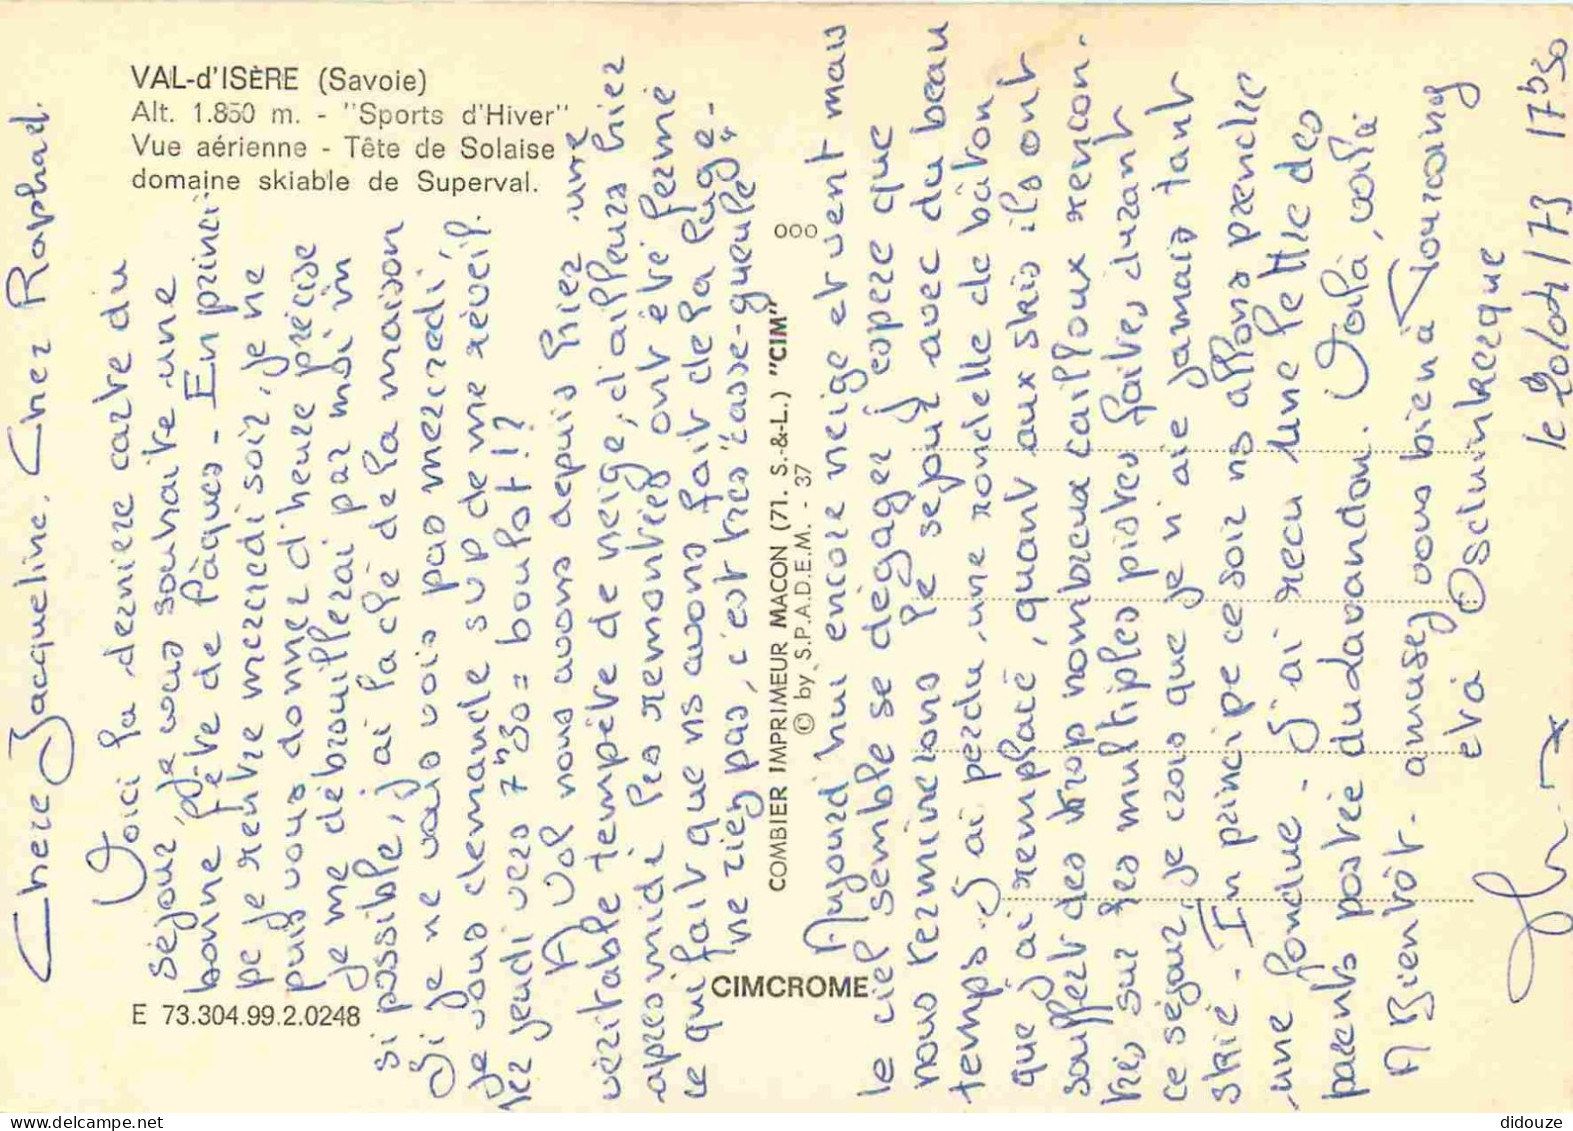 VAL-d'ISÈRE (Savoie)
Alt. 1.850 m. - "Sports d'Hiver"
Vue aérienne - Tête de Solaise
domaine skiable de Superval.
E 73.304.99.2.0248
CIMCROME
COMBIER IMPRIMEUR MACON (71. S.-&-L.) "CIM"
© by S.P.A.D.E.M. - 37
000
Chere Jacqueline, Cher Raphael.
Voici la derniere carte du
séjour, je vous souhaite une
bonne fête de Pâques - En princi
pe je rentre mercredi soir, je ne
puis vous donner d'heure précise
je me débrouillerai par moi m
si possible, j'ai la clé de la maison
Si je ne vous vois pas mercredi,
je vous demande sup de me réveil.
ler jeudi vers 7h30 = boulot !?
A Val nous avons depuis hier une
véritable tempête de neige, d'ailleurs hier
apres midi les remontées ont été fermé
ce qui fait que ns avons fait de la luge -
ne riez pas, c'est très "casse-gueule"
Aujourd'hui encore neige et vent mais
le ciel semble se dégager j'espere que
nous terminerons le sejour avec du beau
temps. J'ai perdu une rondelle de bâton
que j'ai remplacé, quant aux skis ils ont
souffert des trop nombreux cailloux rencon.
trés sur les multiples pistes faites durant
ce séjour, je crois que je n'aie jamais tant
skié - En principe ce soir ns allons prendre
une fondue - J'ai recu une lettre des
parents postée du davandon. Voilà, voilà
A Bientôt - amusez vous bien à Tourcoing
et à Osduinkerque
le 20/04/73 17h30